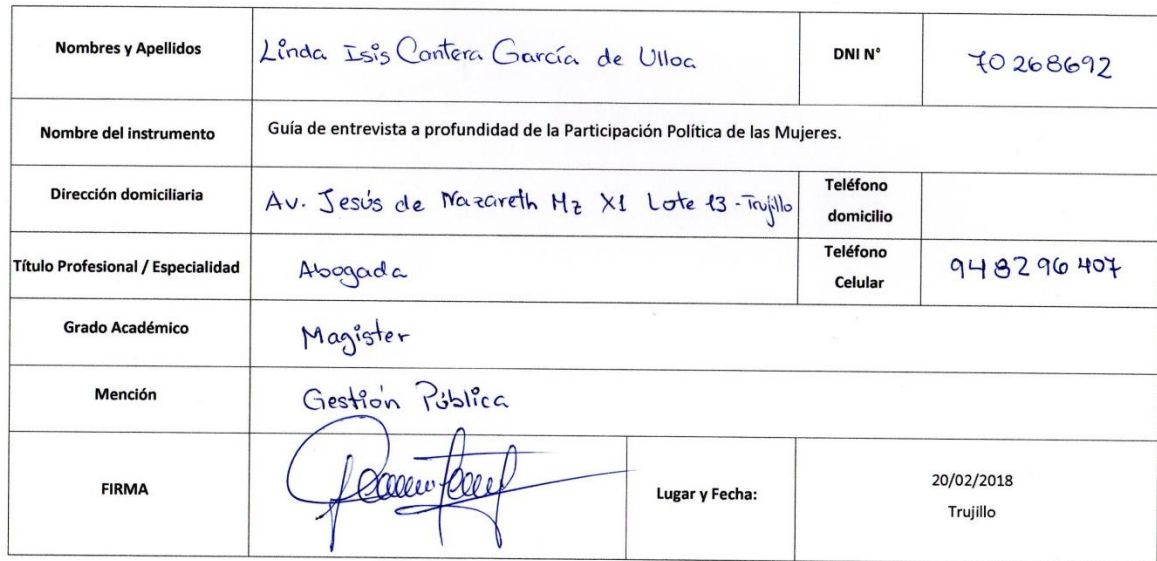 Nombres y Apellidos Linda Isis Cantera García de Ulloa DNI N° 70268692
Nombre del instrumento Guía de entrevista a profundidad de la Participación Política de las Mujeres.
Dirección domiciliaria Av. Jesús de Nazareth Mz X1 Lote 13 - Trujillo Teléfono
domicilio
Título Profesional / Especialidad Abogada Teléfono
Celular 948296407
Grado Académico Magister
Mención Gestión Pública
FIRMA Lugar y Fecha: 20/02/2018
Trujillo